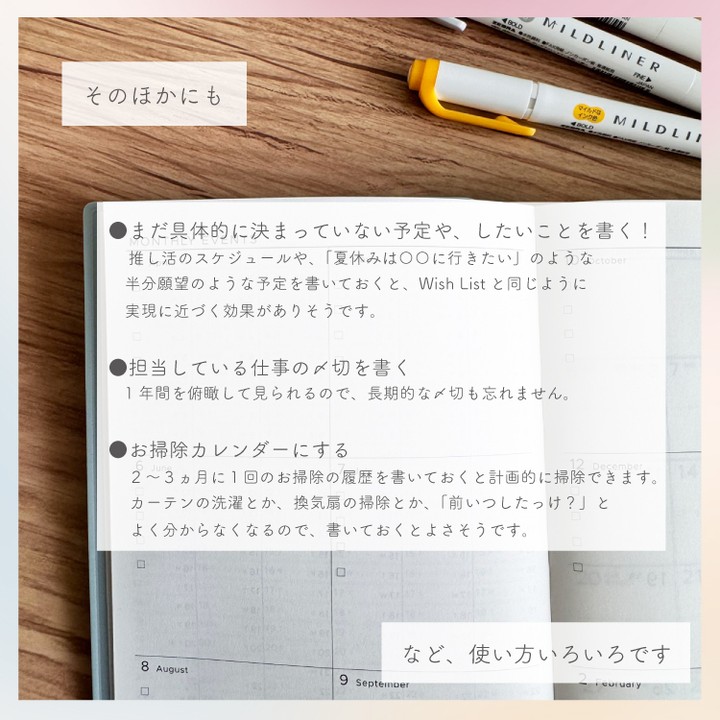 MILDLINER
◀BOLD
FINE▶
マイルドな
インク色
◀BOLD
MILDLIN
そのほかにも
●まだ具体的に決まっていない予定や、したいことを書く!
推し活のスケジュールや、「夏休みは〇〇に行きたい」のような
半分願望のような予定を書いておくと、Wish List と同じように
実現に近づく効果がありそうです。
MONTHLY EVENTS
October
●担当している仕事の〆切を書く
1年間を俯瞰して見られるので、長期的な〆切も忘れません。
●お掃除カレンダーにする
6 June
7
12 December
2〜3ヵ月に1回のお掃除の履歴を書いておくと計画的に掃除できます。
カーテンの洗濯とか、換気扇の掃除とか、「前いつしたっけ?」と
よく分からなくなるので、書いておくとよさそうです。
など、使い方いろいろです
8 August
9 September
2 February